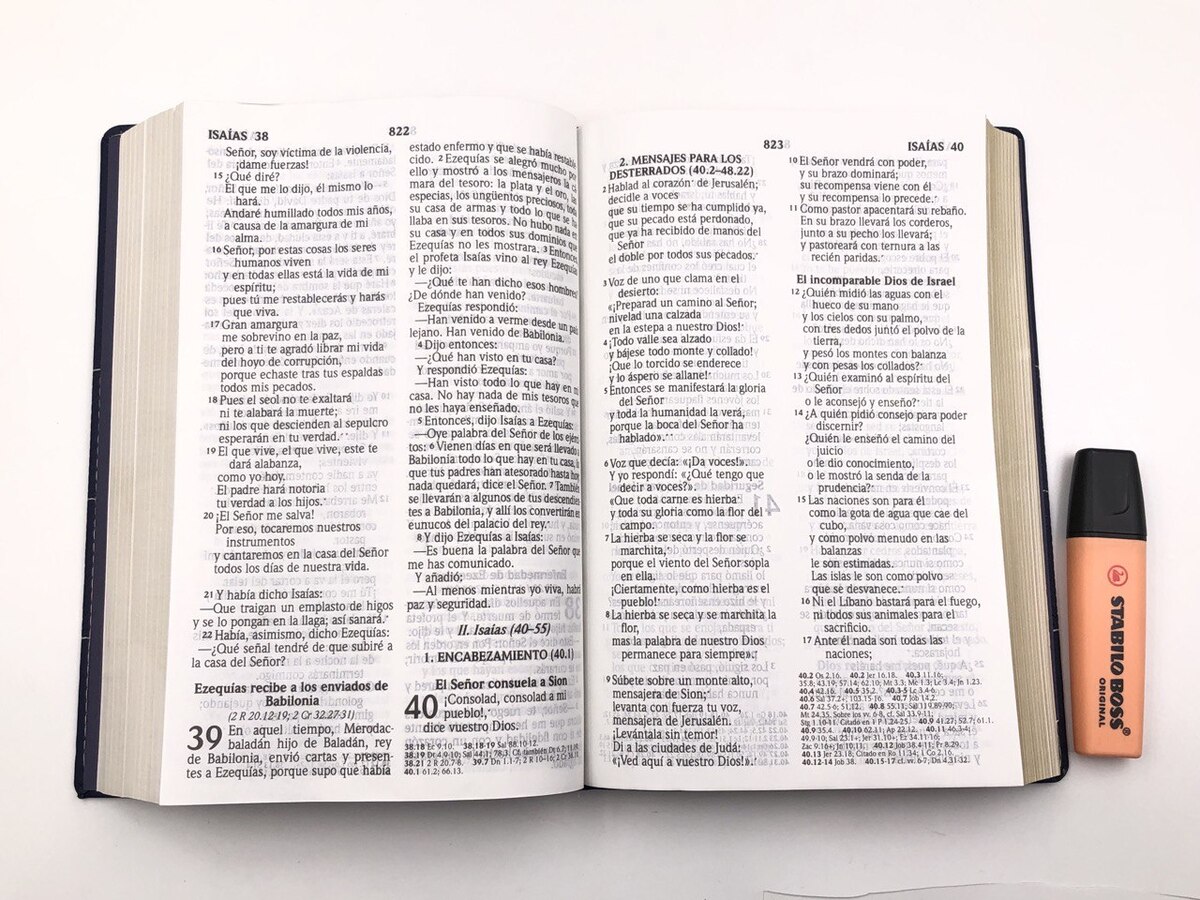 ISAÍAS 38
822
Señor, soy víctima de la violencia,
¡dame fuerzas!
15 ¿Qué diré?
El que me lo dijo, él mismo lo
hará.
Andaré humillado todos mis años,
a causa de la amargura de mi
alma.
16 Señor, por estas cosas los seres
humanos viven
y en todas ellas está la vida de mi
espíritu;
pues tú me restablecerás y harás
que viva.
17 Gran amargura
me sobrevino en la paz,
pero a ti te agradó librar mi vida
del hoyo de corrupción,
porque echaste tras tus espaldas
todos mis pecados.
18 Pues el seol no te exaltará
ni te alabará la muerte;
ni los que descienden al sepulcro
esperarán en tu verdad.
19 El que vive, el que vive, este te
dará alabanza,
como yo hoy.
El padre hará notoria
tu verdad a los hijos.
20 ¡El Señor me salva!
Por eso, tocaremos nuestros
instrumentos
y cantaremos en la casa del Señor
todos los días de nuestra vida.
21 Y había dicho Isaías:
—Que traigan un emplasto de higos
y se lo pongan en la llaga; así sanará.
22 Había, asimismo, dicho Ezequías:
—¿Qué señal tendré de que subiré a
la casa del Señor?
Ezequías recibe a los enviados de
Babilonia
(2 R 20.12-19; 2 Cr 32.27-31)
39 En aquel tiempo, Merodac-
baladán hijo de Baladán, rey
de Babilonia, envió cartas y presen-
tes a Ezequías, porque supo que había
estado enfermo y que se había restable
cido. 2 Ezequías se alegró mucho por
ello y mostró a los mensajeros la cá
mara del tesoro: la plata y el oro, las
especias, los ungüentos preciosos, toda
su casa de armas y todo lo que se ha
llaba en sus tesoros. No hubo nada en
su casa y en todos sus dominios que
Ezequías no les mostrara. 3 Entonces,
el profeta Isaías vino al rey Ezequías
y le dijo:
—¿Qué te han dicho esos hombres
¿De dónde han venido?
Ezequías respondió:
—Han venido a verme desde un país
lejano. Han venido de Babilonia.
4 Dijo entonces:
—¿Qué han visto en tu casa?
Y respondió Ezequías:
—Han visto todo lo que hay en mi
casa. No hay nada de mis tesoros que
no les haya enseñado.
5 Entonces, dijo Isaías a Ezequías:
—Oye palabra del Señor de los ejérci
tos: 6 Vienen días en que será llevado a
Babilonia todo lo que hay en tu casa, lo
que tus padres han atesorado hasta hoy
nada quedará, dice el Señor. 7 También
se llevarán a algunos de tus descendien
tes a Babilonia, y allí los convertirán en
eunucos del palacio del rey.
8 Y dijo Ezequías a Isaías:
—Es buena la palabra del Señor que
me has comunicado.
Y añadió:
—Al menos mientras yo viva, habrá
paz y seguridad.
II. Isaías (40–55)
1. ENCABEZAMIENTO (40.1)
El Señor consuela a Sion
40 ¡Consolad, consolad a mi
pueblo!,
dice vuestro Dios.
38.18 Ec 9.10. 38.18-19 Sal 88.10-12.
38.19 Dt 4.9-10; Sal 44.1; 78.3. Cf. también Dt 6.7; 11.19.
38.21 2 R 20.7-8. 39.7 Dn 1.1-7; 2 R 10-16; 2 Cr
40.1 61.2; 66.13.
823
ISAÍAS 40
2. MENSAJES PARA LOS
DESTERRADOS (40.2–48.22)
2 Hablad al corazón de Jerusalén;
decidle a voces
que su tiempo se ha cumplido ya,
que su pecado está perdonado,
que ya ha recibido de manos del
Señor
el doble por todos sus pecados.
3 Voz de uno que clama en el
desierto:
«¡Preparad un camino al Señor;
nivelad una calzada
en la estepa a nuestro Dios!
4 ¡Todo valle sea alzado
y bájese todo monte y collado!
¡Que lo torcido se enderece
y lo áspero se allane!
5 Entonces se manifestará la gloria
del Señor
y toda la humanidad la verá,
porque la boca del Señor ha
hablado».
6 Voz que decía: «¡Da voces!».
Y yo respondí: «¿Qué tengo que
decir a voces?».
«Que toda carne es hierba
y toda su gloria como la flor del
campo.
7 La hierba se seca y la flor se
marchita,
porque el viento del Señor sopla
en ella.
¡Ciertamente, como hierba es el
pueblo!
8 La hierba se seca y se marchita la
flor,
mas la palabra de nuestro Dios
permanece para siempre».
9 Súbete sobre un monte alto,
mensajera de Sion;
levanta con fuerza tu voz,
mensajera de Jerusalén.
¡Levántala sin temor!
Di a las ciudades de Judá:
«¡Ved aquí a vuestro Dios!».
10 El Señor vendrá con poder,
y su brazo dominará;
su recompensa viene con él
y su recompensa lo precede.
11 Como pastor apacentará su rebaño.
En su brazo llevará los corderos,
junto a su pecho los llevará;
y pastoreará con ternura a las
recién paridas.
El incomparable Dios de Israel
12 ¿Quién midió las aguas con el
hueco de su mano
y los cielos con su palmo,
con tres dedos juntó el polvo de la
tierra,
y pesó los montes con balanza
y con pesas los collados?
13 ¿Quién examinó al espíritu del
Señor
o le aconsejó y enseñó?
14 ¿A quién pidió consejo para poder
discernir?
¿Quién le enseñó el camino del
juicio
o le dio conocimiento,
o le mostró la senda de la
prudencia?
15 Las naciones son para él
como la gota de agua que cae del
cubo,
y como polvo menudo en las
balanzas
le son estimadas.
Las islas le son como polvo
que se desvanece.
16 Ni el Líbano bastará para el fuego,
ni todos sus animales para el
sacrificio.
17 Ante él nada son todas las
naciones;
40.2 Os 2.16. 40.2 Jer 16.18. 40.3 11.16;
35.8; 43.19; 57.14; 62.10; Mt 3.3; Mc 1.3; Lc 3.4; Jn 1.23.
40.4 42.16. 40.5 35.2. 40.3-5 Lc 3.4-6.
40.6 Sal 37.2+; 103.15-16. 40.7 Job 14.2.
40.7 42.5-6; 51.12. 40.8 55.11; Sal 119.89-90;
Mt 24.35. Sobre los vv. 6-8, cf. Sal 33.9-11;
Stg 1.10-11. Citado en 1 P 1.24-25. 40.9 41.27; 52.7; 61.1.
40.9 35.4. 40.10 62.11; Ap 22.12. 40.11 46.3-4;
49.9-10; Sal 23.1+; Jer 31.10+; Ez 34.11-16;
Zac 9.16+; Jn 10.11. 40.12 Job 38.4-11; Pr 8.29.
40.13 Jer 23.18; Citado en Ro 11.34; 1 Co 2.16.
40.12-14 Job 38. 40.15-17 cf. vv. 6-7; Dn 4.31-32.
STABILO BOSS®
ORIGINAL